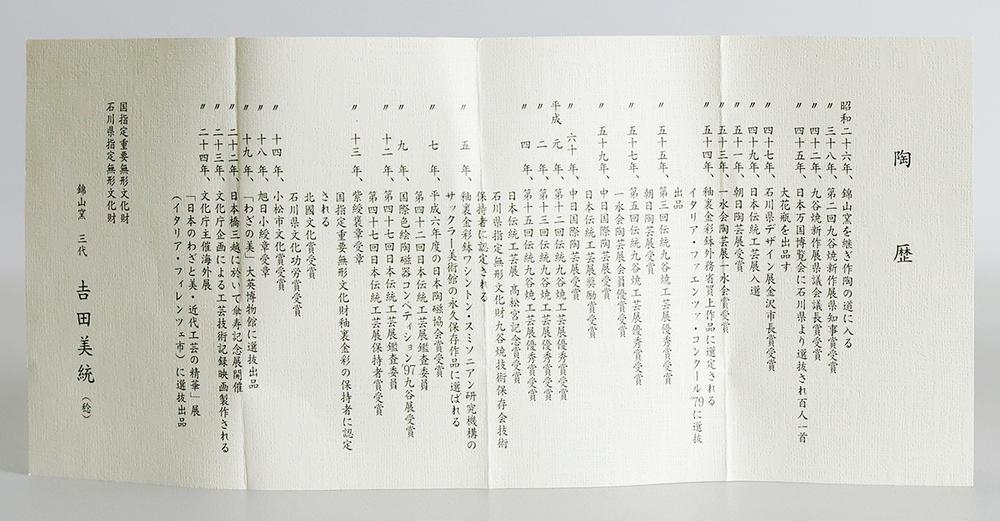 陶歴
昭和二十六年、錦山窯を継ぎ作陶の道に入る
〃 三十八年、第二回九谷焼新作展県知事賞受賞
〃 四十二年、九谷焼新作展県議会議長賞受賞
〃 四十五年、日本万国博覧会に石川県より選抜され百人一首
大花瓶を出品す
〃 四十七年、石川県デザイン展金沢市長賞受賞
〃 四十九年、日本伝統工芸展入選
〃 五十一年、朝日陶芸展受賞
〃 五十三年、一水会陶芸展一水会賞受賞
〃 五十四年、釉裏金彩鉢外務省買上作品に選定される
イタリア・ファエンツァ・コンクール'79に選抜
出品
〃 五十五年、第三回伝統九谷焼工芸展優秀賞受賞
朝日陶芸展受賞
〃 五十七年、第五回伝統九谷焼工芸展優秀賞受賞
一水会陶芸展会員優賞受賞
〃 五十九年、中日国際陶芸展受賞
日本伝統工芸展奨励賞受賞
〃 六十年、中日国際陶芸展受賞
平成 元年、第十二回伝統九谷焼工芸展優秀賞受賞
〃 二年、第十三回伝統九谷焼工芸展優秀賞受賞
〃 四年、第十五回伝統九谷焼工芸展優秀賞受賞
日本伝統工芸展高松宮記念賞受賞
石川県指定無形文化財九谷焼技術保存会技術
保持者に認定される
〃 五年、釉裏金彩鉢ワシントン・スミソニアン研究機構の
サックラー美術館の永久保存作品に選ばれる
〃 七年、平成六年度の日本陶磁協会賞受賞
第四十二回日本伝統工芸展鑑査委員
〃 九年、国際色絵陶磁器コンペティション'97九谷展受賞
〃 十二年、第四十七回日本伝統工芸展鑑査委員
第四十七回日本伝統工芸展保持者賞受賞
〃 十三年、紫綬褒章受章
国指定重要無形文化財釉裏金彩の保持者に認定
される
北國文化賞受賞
石川県文化功労賞受賞
〃 十四年、小松市文化賞受賞
〃 十八年、旭日小綬章受章
〃 十九年、「わざの美」大英博物館に選抜出品
〃 二十二年、日本橋三越に於いて傘寿記念展開催
〃 二十三年、文化庁企画による工芸技術記録映画製作される
〃 二十四年、文化庁主催海外展
「日本のわざと美・近代工芸の精華」展
(イタリア・フィレンツェ市)に選抜出品
国指定重要無形文化財
石川県指定無形文化財
錦山窯 三代 吉田美統(稔)